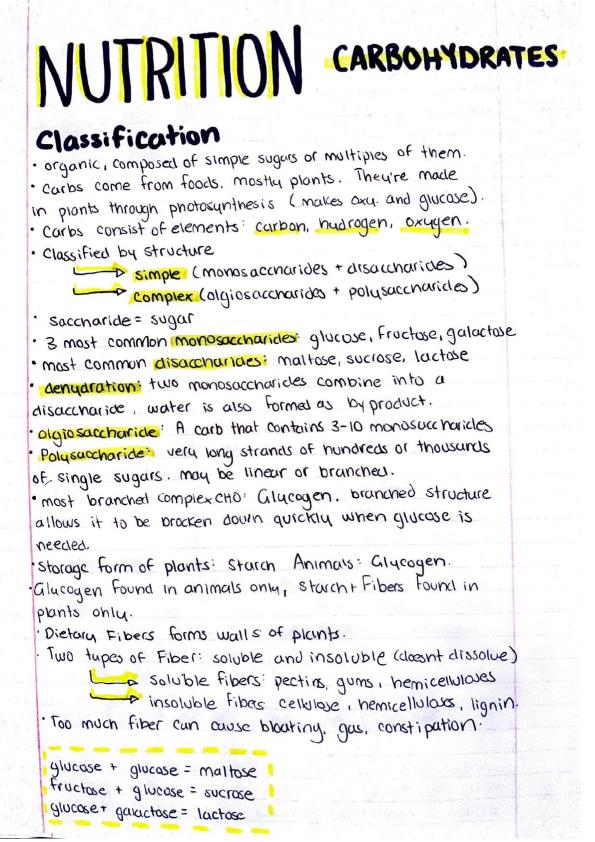 NUTRITION CARBOHYDRATES
Classification
· organic, composed of simple sugars or multiples of them.
· Carbs come from foods, mostly plants. They're made
in plants through photosynthesis (makes oxy. and glucose).
· Carbs consist of elements: carbon, hydrogen, oxygen.
· Classified by structure
→ simple (monosaccharides + disaccharides)
→ complex (olgiosaccharides + polysaccharides)
· Saccharide = sugar
· 3 most common monosaccharides: glucose, fructose, galactose
· most common disaccharides: maltose, sucrose, lactose
· dehydration: two monosaccharides combine into a
disaccharide, water is also formed as byproduct.
· olgiosaccharide: A carb that contains 3-10 monosaccharides
· Polysaccharide: very long strands of hundreds or thousands
of single sugars. may be linear or branched.
· most branched complex CHO: Glycogen. branched structure
allows it to be brocken down quickly when glucose is
needed.
· Storage form of plants: Starch Animals: Glycogen.
· Glycogen found in animals only, Starch + Fibers found in
plants only.
· Dietary Fibers forms walls of plants.
· Two types of Fiber: soluble and insoluble (doesnt dissolve)
→ soluble fibers: pectins, gums, hemicelluloses
→ insoluble fibers cellulose, hemicelluloses, lignin.
· Too much fiber can cause bloating, gas, constipation.
glucose + glucose = maltose
fructose + glucose = sucrose
glucose + galactose = lactose